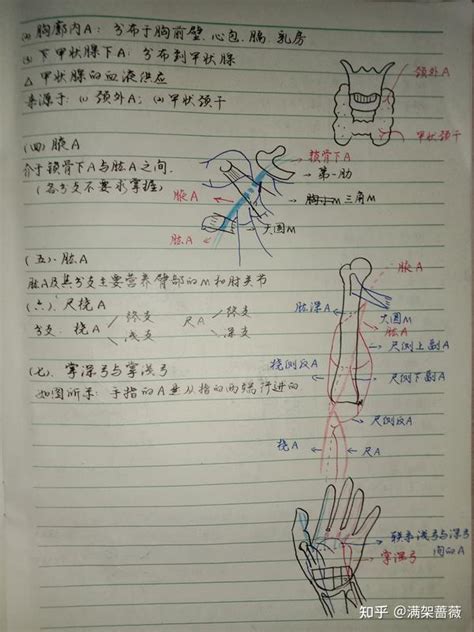 (a) 胸廓内A: 分布于胸前壁、心包、膈、乳房
(b) 下甲状腺下A: 分布到甲状腺
△ 甲状腺的血液供应
来源于: (1) 颈外A; (2) 甲状颈干
颈外A
甲状颈干
(四) 腋A
介于锁骨下A与肱A之间.
(各分支不要求掌握)
锁骨下A
第一肋
腋A
胸小M 三角M
肱A
大圆M
(五). 肱A
肱A及其分支主要营养臂部的M和肘关节
(六). 尺桡A
分支: 桡A
终支
浅支
尺A
终支
深支
(七). 掌深弓与掌浅弓
如图所示: 手指的A是从指的两端行进的
腋A
肱深A
大圆M
肱A
尺侧上副A
桡侧反A
尺侧下副A
尺侧反A
桡A
尺A
联系浅弓与深弓
间的A
掌深弓
知乎 @满架蔷薇